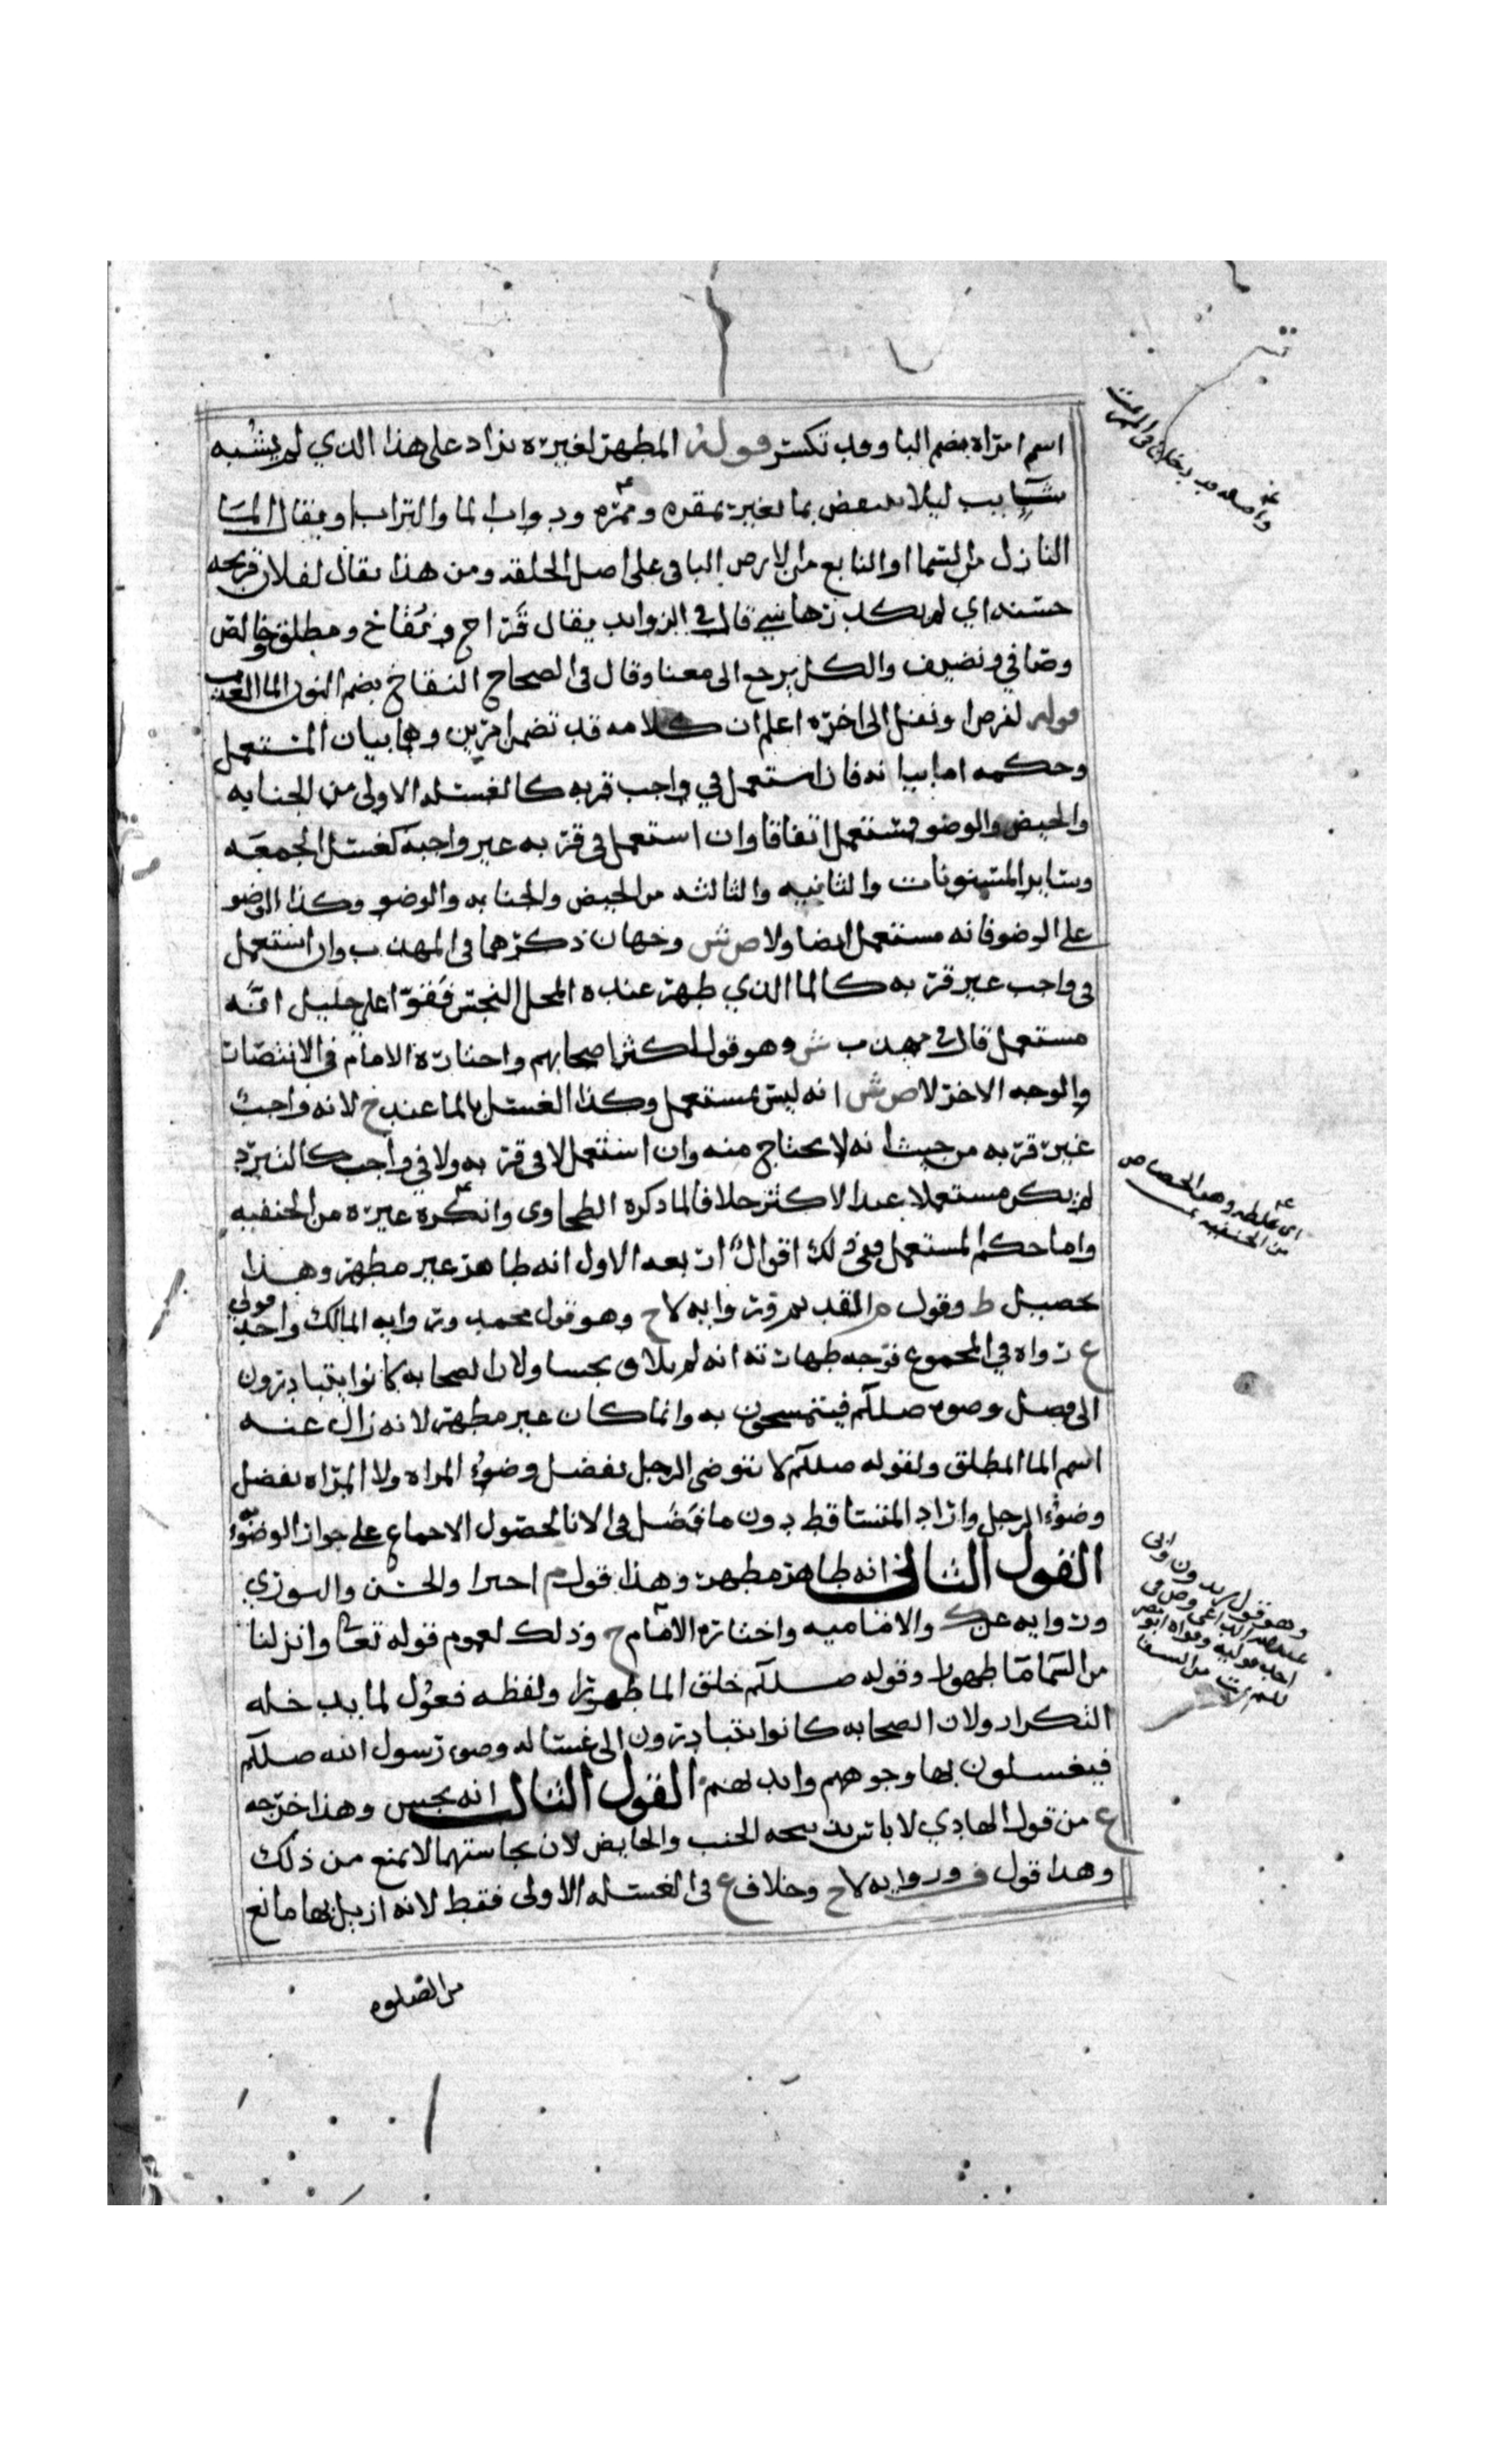 اسم امراه بضم البا وقد تكسر قوله المطهر لغيره يزاد على هذا الذي لم يشبه
شايب ليلا ينتقض بما تغير بمقره وممره وبواب الما والتراب او يقال الما
النازل من السما او النابع من الارض الباقي على اصل الخلقه ومن هذا يقال لفلان قريحه
حسنه اي لم يكدرها شي قال في الزوايد يقال قراح ونقاخ ومطلق وخالص
وصافي ونضيف والكل يرجع الى معنا وقال في الصحاح النقاخ بضم النون الما العذب
قوله لفرض او نفل الى اخره اعلم ان كلامه قد تضمن امرين وهما بيان المستعمل
وحكمه اما بيانه فان استعمل في واجب قربه كالغسله الاولى من الجنابه
والحيض والوضو فمستعمل اتفاقا وان استعمل في قربه غير واجبه كغسل الجمعه
وساير المسنونات والثانيه والثالثه من الحيض والجنابه والوضو وكذا الوضو
على الوضو فانه مستعمل ايضا ولاص ش وجهان ذكرهما في المهذب وان استعمل
في واجب غير قربه كالما الذي طهر عنده المحل النجس فقوا على خليل انه
مستعمل قال في مهذب ش وهو قول اكثر اصحابهم واختاره الامام في الانتصار
والوجه الاخر لاص ش انه ليس بمستعمل وكذا الغسل بالما عند ح لانه واجب
غير قربه من حيث انه لا يحتاج منه وان استعمل لا في قربه ولا في واجب كالتبرد
لم يكن مستعملا عند الاكثر خلافا لما ذكره الطحاوي وانكره غيره من الحنفيه
واما حكم المستعمل ففي ذلك اقوال اربعه الاول انه طاهر غير مطهر وهذا
تحصيل ط وقول م القديم وروايه لاح وهو قول محمد وروايه المالك واحد قولي
ع رواه في المجموع وجه طهارته انه لم يلاق نجسا ولان الصحابه كانوا يتبادرون
الى فضل وضوء صللم فيتمسحون به وانما كان غير مطهر لانه زال عنه
اسم الما المطلق ولقوله صللم لا يتوضى الرجل بفضل وضوء المراه ولا المراه بفضل
وضوء الرجل واراد المتساقط دون ما فضل في الانا لحصول الاجماع على جواز الوضوء
القول الثاني انه طاهر مطهر وهذا قول م اخيرا والحسن والثوري
وروايه عن ك والاماميه واختاره الامام ح وذلك لعموم قوله تعالى وانزلنا
من السما ما طهورا وقوله صللم خلق الما طهورا ولفظه فعول لما يدخله
التكرار ولان الصحابه كانوا يتبادرون الى غساله وضوء رسول الله صللم
فيغسلون بها وجوههم وايديهم القول الثالث انه نجس وهذا خرجه
ع من قول الهادي لا باس بذبيحه الجنب والحايض لان نجاستهما لا تمنع من ذلك
وهذا قول ف وروايه لاح وخلاف ع في الغسله الاولى فقط لانه ازيل بها مانع
من الصلوه
اي غلطه وهو الجصاص
من الحنفيه